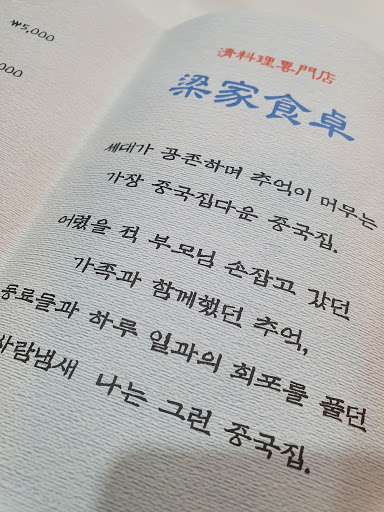 ₩5,000
000
清料理専門店
梁家食卓
세대가 공존하며 추억이 머무는
가장 중국집다운 중국집.
어렸을 적 부모님 손잡고 갔던
가족과 함께했던 추억,
동료들과 하루 일과의 회포를 풀던
사람냄새 나는 그런 중국집.